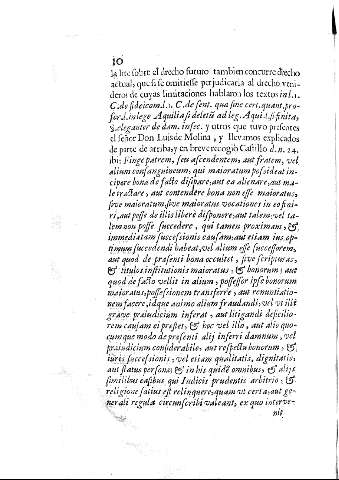 10
la lite sobre el drecho futuro tambien concurre drecho
actual, que si se omitiesse perjudicaria al drecho veni-
dero: de cuyas limitaciones hablaron los textos in l.1.
C. de fideicom. l.1. C. de sent. quæ sine cert. quant. pro-
fer. d. in lege Aquilia ff. deletũ ad leg. Aqui. l. si finita,
§. eleganter de dam. infec. y otros que tuvo presentes
el señor Don Luis de Molina, y llevamos explicados
de parte de arriba, y en breve recogiò Castillo d. n. 24.
ibi: Finge patrem, seu ascendentem, aut fratrem, vel
alium consanguineum, qui maioratum possideat in-
cipere bona de facto dissipare, aut ea alienare, aut ma-
le tractare, aut contendere bona non esse maioratus,
sive maioratum, sive maioratus vocationes in eo fini-
ri, aut posse de illis liberè disponere, aut talem, vel ta-
lem non posse succedere, qui tamen proximam, &
immediatam successionis causam, aut etiam ius op-
timum succedendi habeat, vel alium esse successorem,
aut quod de præsenti bona occultet, sive scripturas,
& titulos institutionis maioratus, & bonorum; aut
quod de facto vellit in alium, possessor ipse bonorum
maioratus, possessionem transferre, aut renuntiatio-
nem facere, idque animo alium fraudandi, vel ut illi
grave præiudicium inferat, aut litigandi difficilio-
rem causam ei præstet, & hoc vel illo, aut alio quo-
cumque modo de præsenti alij inferri damnum, vel
præiudicium considerabile, aut respectu bonorum, &
iuris successionis, vel etiam qualitatis, dignitatis,
aut status personæ, & in his quidẽ omnibus, & alijs
similibus casibus qui Iudicis prudentis arbitrio, &
religione satius est relinquere, quam ut certa, aut ge-
nerali regula circunscribi valeant, ex quo interve-
nit